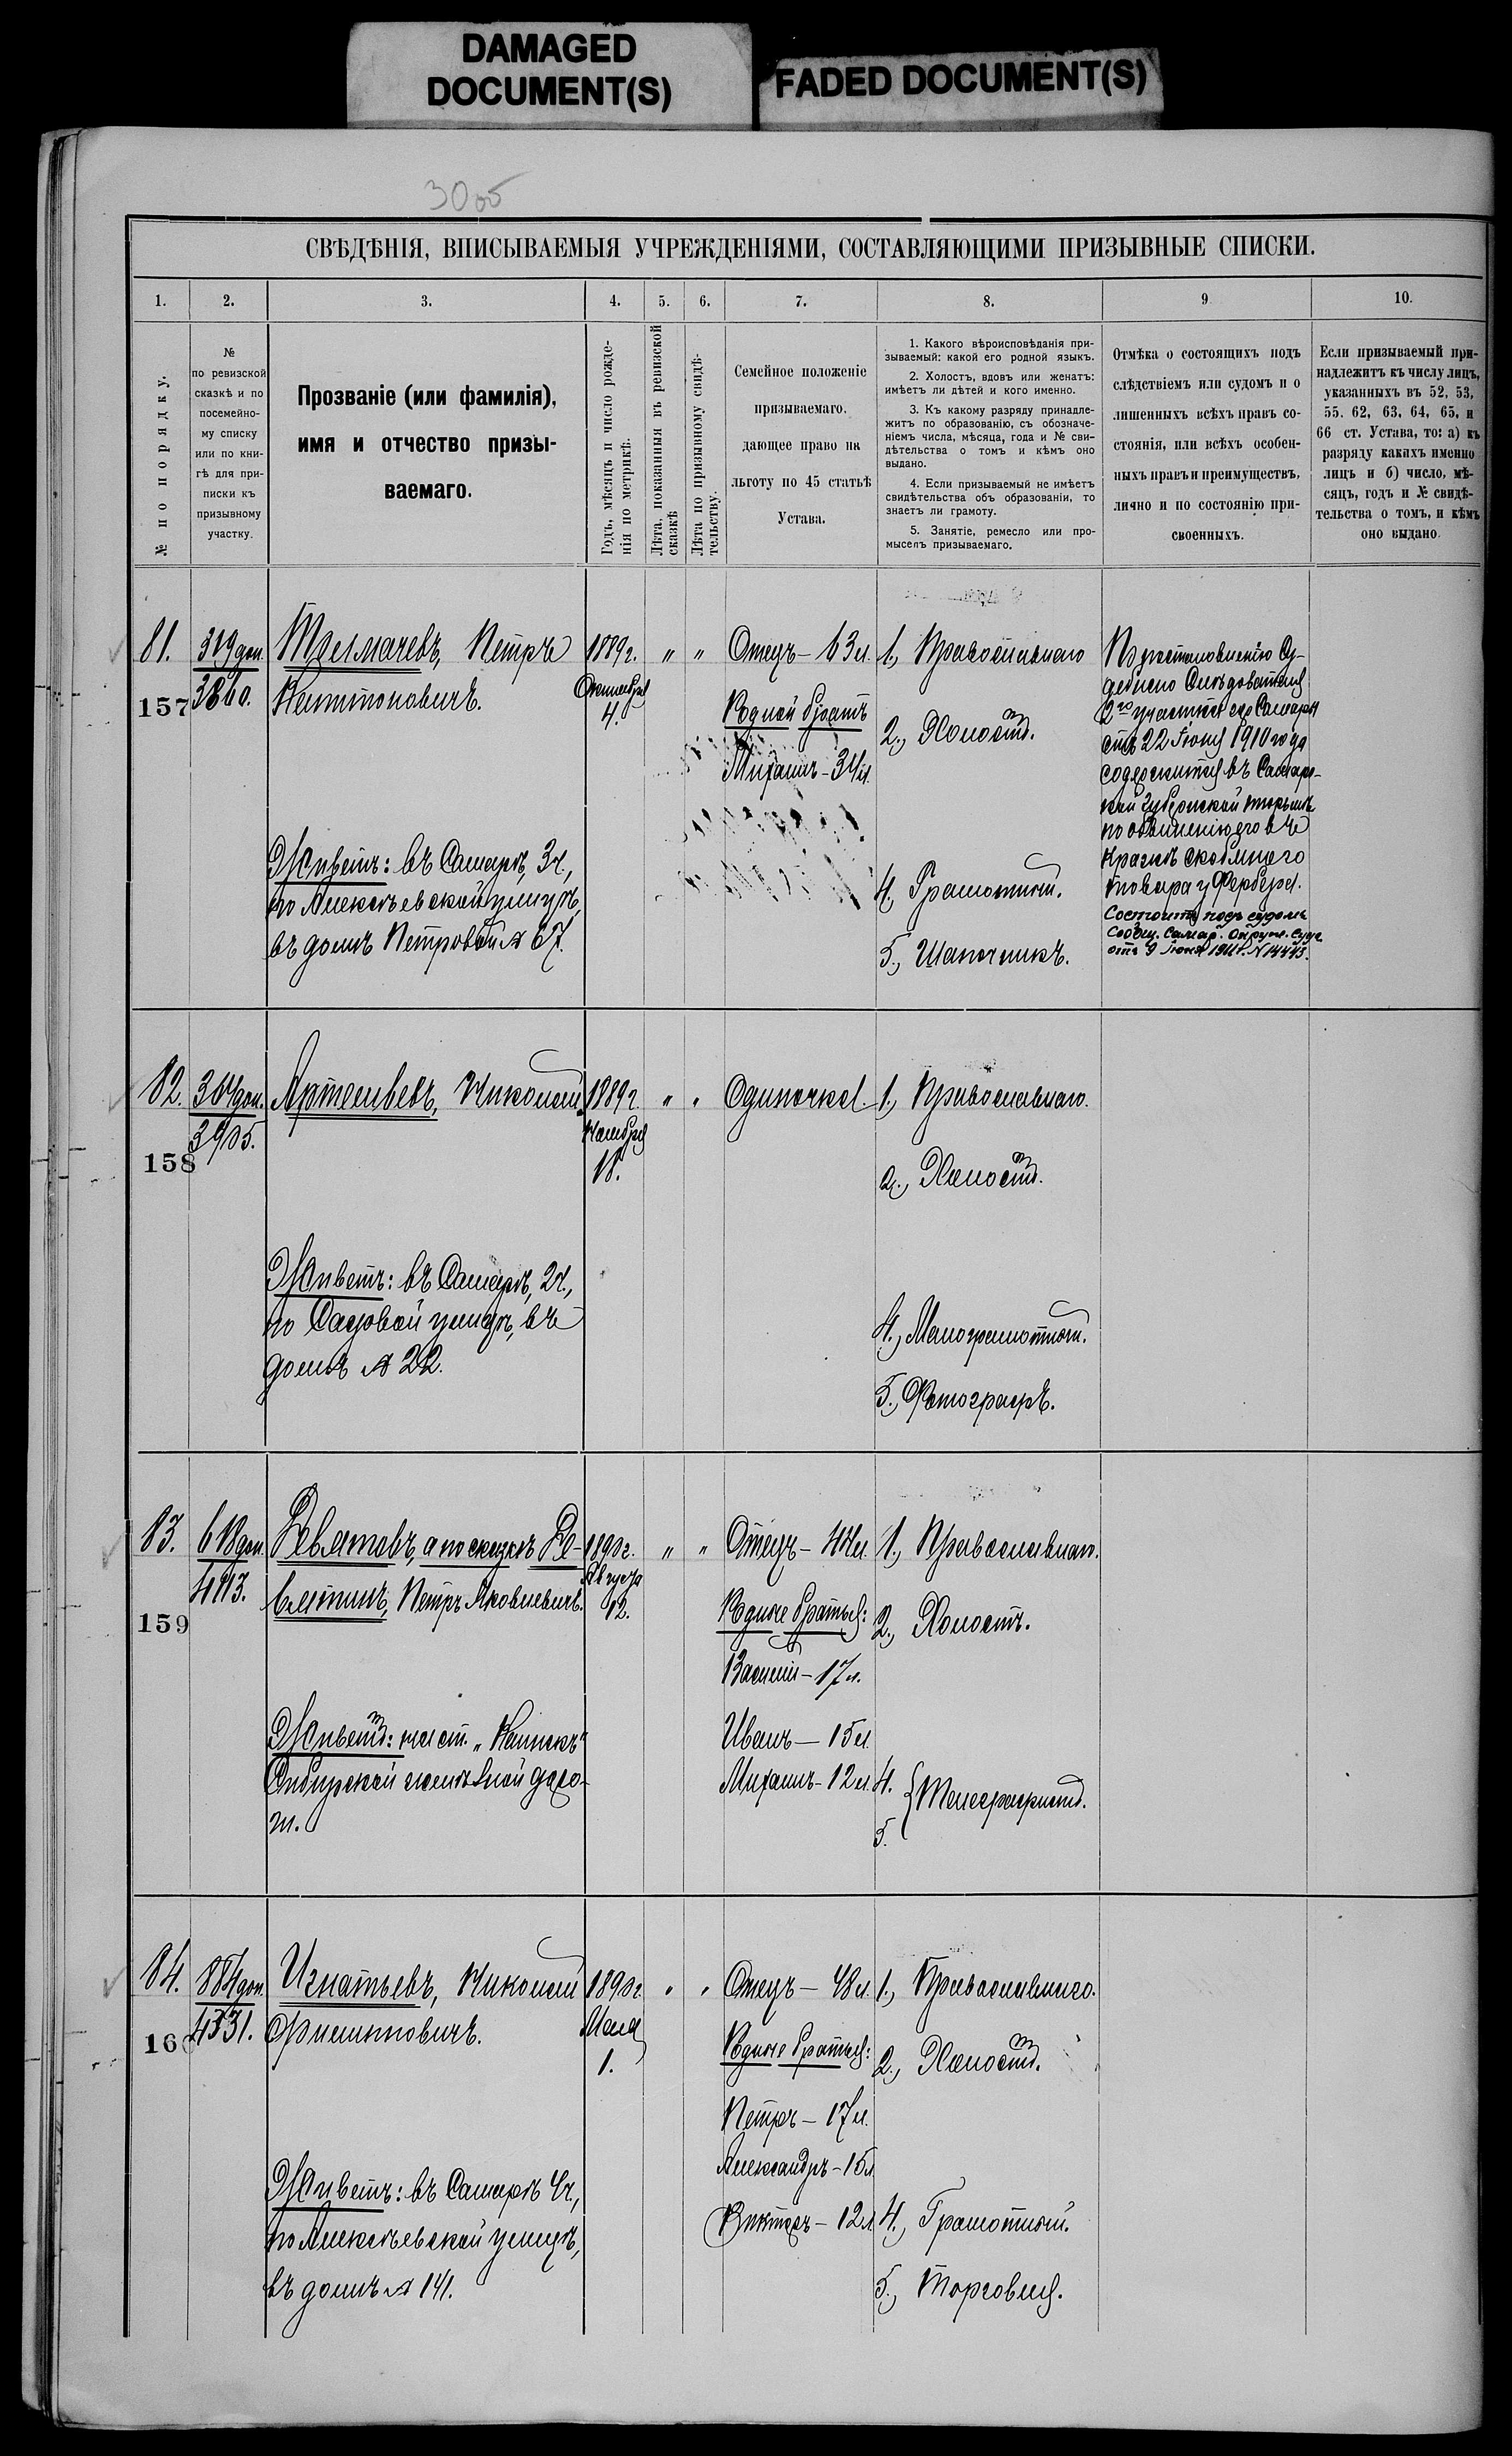 DAMAGED
DOCUMENT(S)
FADED DOCUMENT(S)
30об
СВѢДѢНІЯ, ВПИСЫВАЕМЫЯ УЧРЕЖДЕНІЯМИ, СОСТАВЛЯЮЩИМИ ПРИЗЫВНЫЕ СПИСКИ.
1. 2. 3. 4. 5. 6. 7. 8. 9 10.
№ по порядку.
№
по ревизской
сказкѣ и по
посемейно-
му списку
или по кни-
гѣ для при-
писки къ
призывному
участку.
Прозваніе (или фамилія),
имя и отчество призы-
ваемаго.
Годъ, мѣсяцъ и число рожде-
нія по метрикѣ.
Лѣта, показанныя въ ревизской
сказкѣ
Лѣта по призывному свидѣ-
тельству.
Семейное положеніе
призываемаго,
дающее право на
льготу по 45 статьѣ
Устава.
1. Какого вѣроисповѣданія при-
зываемый: какой его родной языкъ.
2. Холостъ, вдовъ или женатъ:
имѣетъ ли дѣтей и кого именно.
3. Къ какому разряду принадле-
житъ по образованію, съ обозначе-
ніемъ числа, мѣсяца, года и № сви-
дѣтельства о томъ и кѣмъ оно
выдано.
4. Если призываемый не имѣетъ
свидѣтельства объ образованіи, то
знаетъ ли грамоту.
5. Занятіе, ремесло или про-
мыселъ призываемаго.
Отмѣка о состоящихъ подъ
слѣдствіемъ или судомъ и о
лишенныхъ всѣхъ правъ со-
стоянія, или всѣхъ особен-
ныхъ правъ и преимуществъ,
лично и по состоянію при-
своенныхъ.
Если призываемый при-
надлежитъ къ числу лицъ,
указанныхъ въ 52, 53,
55. 62, 63, 64, 65, и
66 ст. Устава, то: а) къ
разряду какихъ именно
лицъ и б) число, мѣ-
сяцъ, годъ и № свидѣ-
тельства о томъ, и кѣмъ
оно выдано.
81.
157
319 доп.
3860.
Толмачевъ, Петръ
Антоновичъ.
Живетъ: въ Самарѣ, 3 ч.,
по Алексѣевской улицѣ,
въ домѣ Петровой № 67.
1889 г.
4.
" "
Отецъ – 63 л.
Родной братъ
Михаилъ – 34 л.
1., Православнаго
2., Холостъ.
4., Грамотный.
5., Шапочникъ.
По постановленію Су-
дебнаго Слѣдователя
2го участка гор Самары
отъ 22 Іюня 1910 года
содержится въ Самарс-
кой Губернской тюрьмѣ
по обвиненію его въ
кражѣ скобяного
товара у Ферберга.
Состоитъ подъ судомъ
Сообщ. Самар. Окруж. Суда
отъ 9 Іюня 1911 г. № 14443.
82.
158
364 доп.
3905.
Артемьевъ, Николай
Живетъ: въ Самарѣ, 2 ч.,
по Садовой улицѣ, въ
домѣ № 22.
1889 г.
Ноября
18.
" "
Одиночка.
1., Православнаго.
2., Холостъ.
4., Малограмотный.
5., Фотографъ.
83.
159
618 доп.
4113.
Девятовъ, а по сказкѣ Де-
вяткинъ, Петръ Яковлевичъ.
Живетъ: на ст. "Каинскъ"
Сибирской желѣзной доро-
ги.
1890 г.
Августа
12.
" "
Отецъ – 44 л.
Родные братья:
Василій – 17 л.
Иванъ – 15 л.
Михаилъ – 12 л.
1., Православнаго.
2., Холостъ.
4.
5.
Телеграфистъ.
84.
160
884 доп.
4331.
Игнатьевъ, Николай
Филипповичъ.
Живетъ: въ Самарѣ 4 ч.,
по Алексѣевской улицѣ,
въ домѣ № 141.
1890 г.
Мая
1.
" "
Отецъ – 48 л.
Родные братья:
Петръ – 17 л.
Александръ – 15 л
Викторъ – 12 л
1., Православнаго.
2., Холостъ.
4., Грамотный.
5., Торговля.